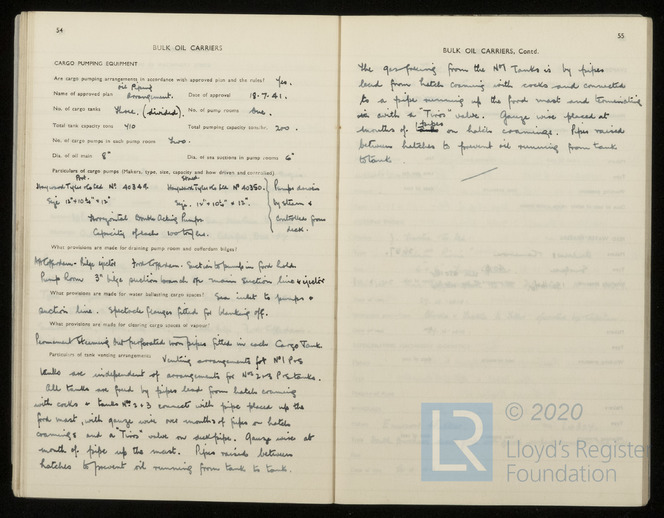 54
BULK OIL CARRIERS
CARGO PUMPING EQUIPMENT
Are cargo pumping arrangements in accordance with approved plan and the rules? Yes.
Name of approved plan Oil Piping Arrangement. Date of approval 18-7-41.
No. of cargo tanks Three, (divided). No. of pump rooms One.
Total tank capacity tons 410 Total pumping capacity tons/hr. 200.
No. of cargo pumps in each pump room Two.
Dia. of oil main 8" Dia. of sea suctions in pump rooms 6"
Particulars of cargo pumps (Makers, type, size, capacity and how driven and controlled)
Port. Starbd.
Hayward Tyler & Co Ltd. No. 40349. Hayward Tyler & Co Ltd. No. 40350. Pumps driven
Size 12" × 10½" × 12" Size. 12" × 10½" × 12". by steam &
Horizontal Double Acting Pumps controlled from
Capacity of each 100 tons/hr. deck.
What provisions are made for draining pump room and cofferdam bilges?
Aft Cofferdam - Bilge ejector Ford Cofferdam. Suction to pump in ford hold
Pump Room 3" bilge suction branch off main suction line & ejector
What provisions are made for water ballasting cargo spaces? Sea inlet to pumps &
suction line. Spectacle flanges fitted for blanking off.
What provisions are made for clearing cargo spaces of vapour?
Permanent steaming out perforated iron pipes fitted in each Cargo Tank.
Particulars of tank venting arrangements Venting arrangements for No1 P&S
tanks are independent of arrangements for Nos 2 & 3 P&S tanks.
All tanks are freed by pipes lead from hatch coaming
with cocks & tanks Nos 2 & 3 connects with pipe placed up the
ford mast, with gauze wire over mouths of pipes on hatch
coamings and a "Tivos" valve on deck pipe. Gauze wire at
mouth of pipe up the mast. Pipes raised between
hatches to prevent oil running from tank to tank.
55
BULK OIL CARRIERS, Contd.
The gas freeing from the No1 Tanks is by pipes
lead from hatch coaming with cocks and connected
to a pipe running up the ford mast and terminating
with a "Tivos" valve. Gauze wire placed at
mouths of pipes on hatch coamings. Pipes raised
between hatches to prevent oil running from tank
to tank.
LR
© 2020
Lloyd's Register
Foundation